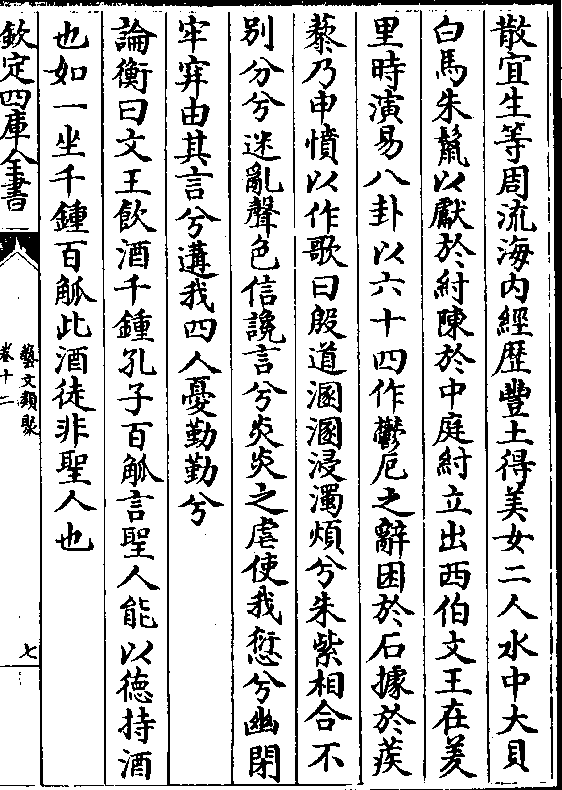 散宜生等周流海内經歴豐土得美女二人水中大貝
白馬朱鬛以獻於紂陳於中庭紂立出西伯文王在羑
里時演易八卦以六十四作鬱厄之辭困於石據於蒺
藜乃申憤以作歌曰殷道溷溷浸濁煩兮朱紫相合不
别分兮迷亂聲色信讒言兮炎炎之虐使我愆兮幽閉
牢穽由其言兮遘我四人憂勤勤兮
論衡曰文王飲酒千鍾孔子百觚言聖人能以徳持酒
也如一坐千鍾百觚此酒徒非聖人也
欽定四庫全書
藝文類聚
卷十二
七